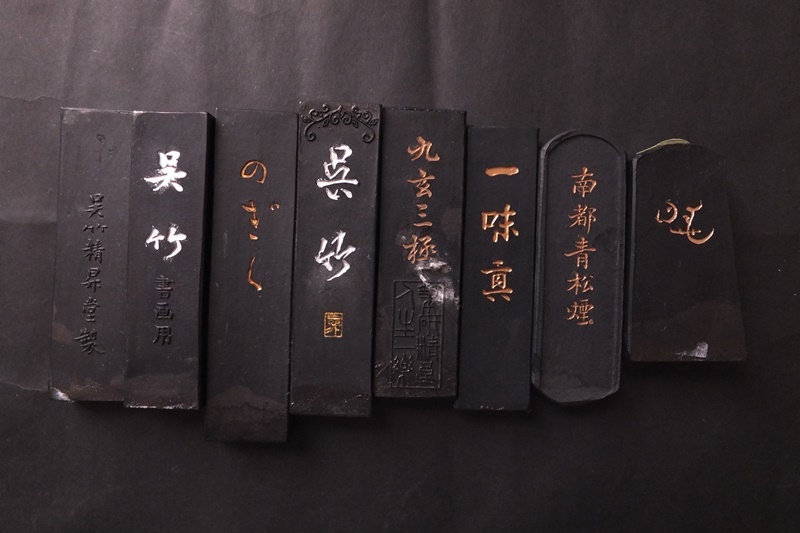 呉竹精昇堂製
呉竹
書画用
のぎく
呉竹
九玄三極
一味真
南都青松煙